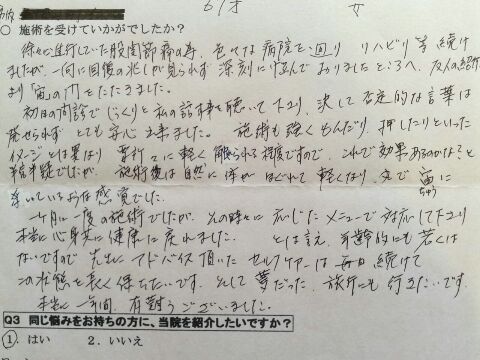 61才 女
○ 施術を受けていかがでしたか？
徐々に進行していた股関節痛の為、色々な病院を廻り リハビリ等 続け
ましたが、一向に回復の兆しが見られず 深刻に悩んでおりましたところへ、友人の紹介
より「宙」の門をたたきました。
初日の問診で じっくりと私の話す事を聴いて下さり、決して否定的な言葉は
発せられず とても安心出来ました。 施術も強くもんだり、押したりといった
イメージとは異なり 着衣で軽く触れられる程度ですので、これで効果あるのかなぁと
半信半疑でしたが、施術後は自然に体がほぐれて軽くなり、まるで宙に
ちゅう
浮いているような感覚でした。
一ヶ月に一度の施術でしたが、その時々に応じたメニューで対応して下さり
本当に心身共に健康に戻れました。 とは言え、年齢的にも若くは
ないですので 先生にアドバイス頂いたセルフケアーは毎日続けて
この状態を長く保ちたいです。そして夢だった、旅行にも行きたいです。
本当に一年間、有難うございました。
Q3 同じ悩みをお持ちの方に、当院を紹介したいですか？
①．はい 2．いいえ